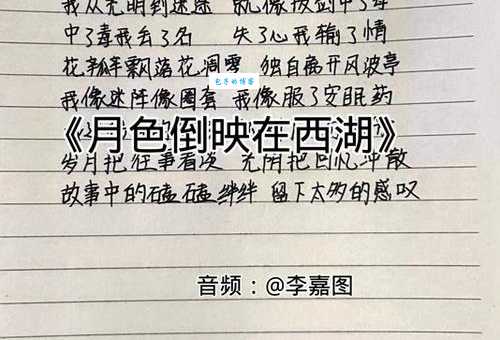 我从光明到迷途 就像拔剑中了毒
中了毒我丢了名 失了心我输了情
花瓣飘落花凋零 独自离开风波亭
包子的博客
我像迷阵像圈套 我像服了安眠药
《月色倒映在西湖》
岁月把往事看淡 光阴把回忆冲散
故事中的磕磕绊绊 留下太多的感叹
音频：@李嘉图